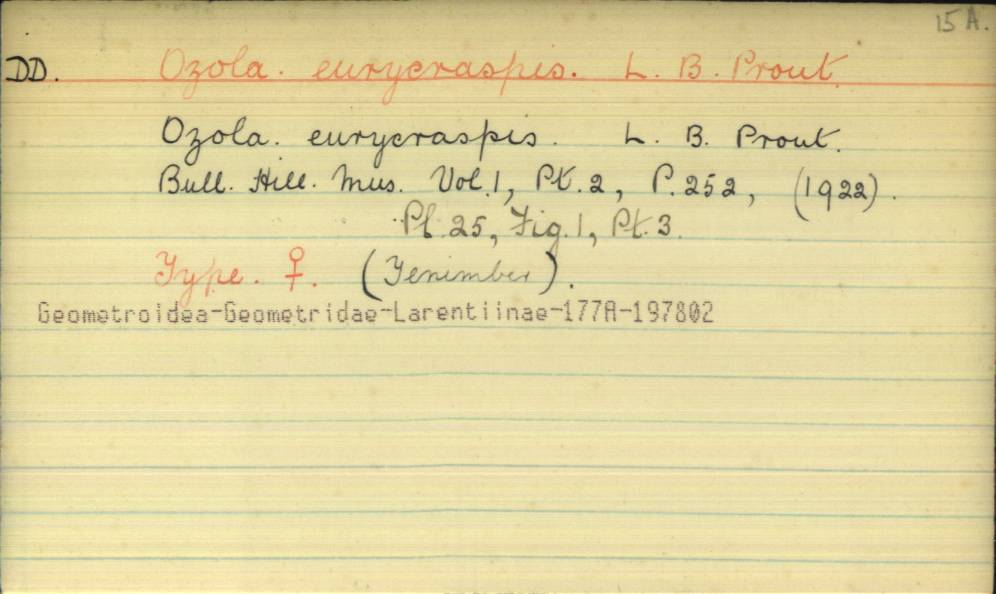 15 A.
DD. Ozola. eurycraspis. L. B. Prout
Ozola. eurycraspis. L. B. Prout.
Bull. Hill. Mus. Vol.1, Pt.2, P.252, (1922).
Pl.25, Fig.1, Pt.3.
Type. ♀. (Tenimber).
Geometroidea-Geometridae-Larentiinae-177A-197802